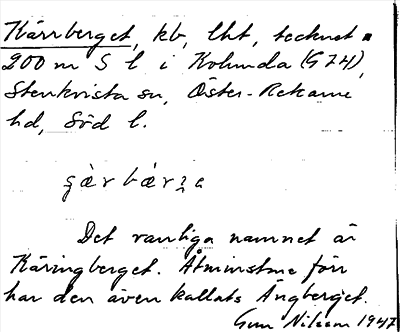 Kärrberget, kb, lht, tecknat
200 m S l i Kolunda (G74),
Stenkvista sn, Öster-Rekarne
hd, Söd l.
Det vanliga namnet är
Käringberget. Åtminstone förr
har den även kallats Ängberget.
Gun Nilsson 1947